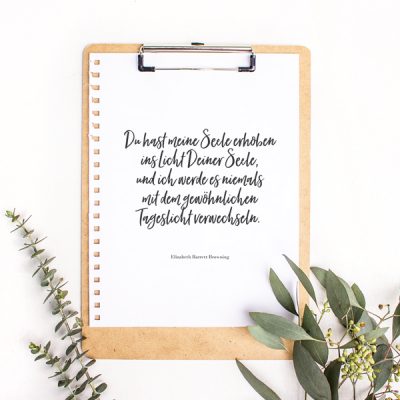 Du hast meine Seele erhoben
ins Licht Deiner Seele,
und ich werde es niemals
mit dem gewöhnlichen
Tageslicht verwechseln.
Elizabeth Barrett Browning